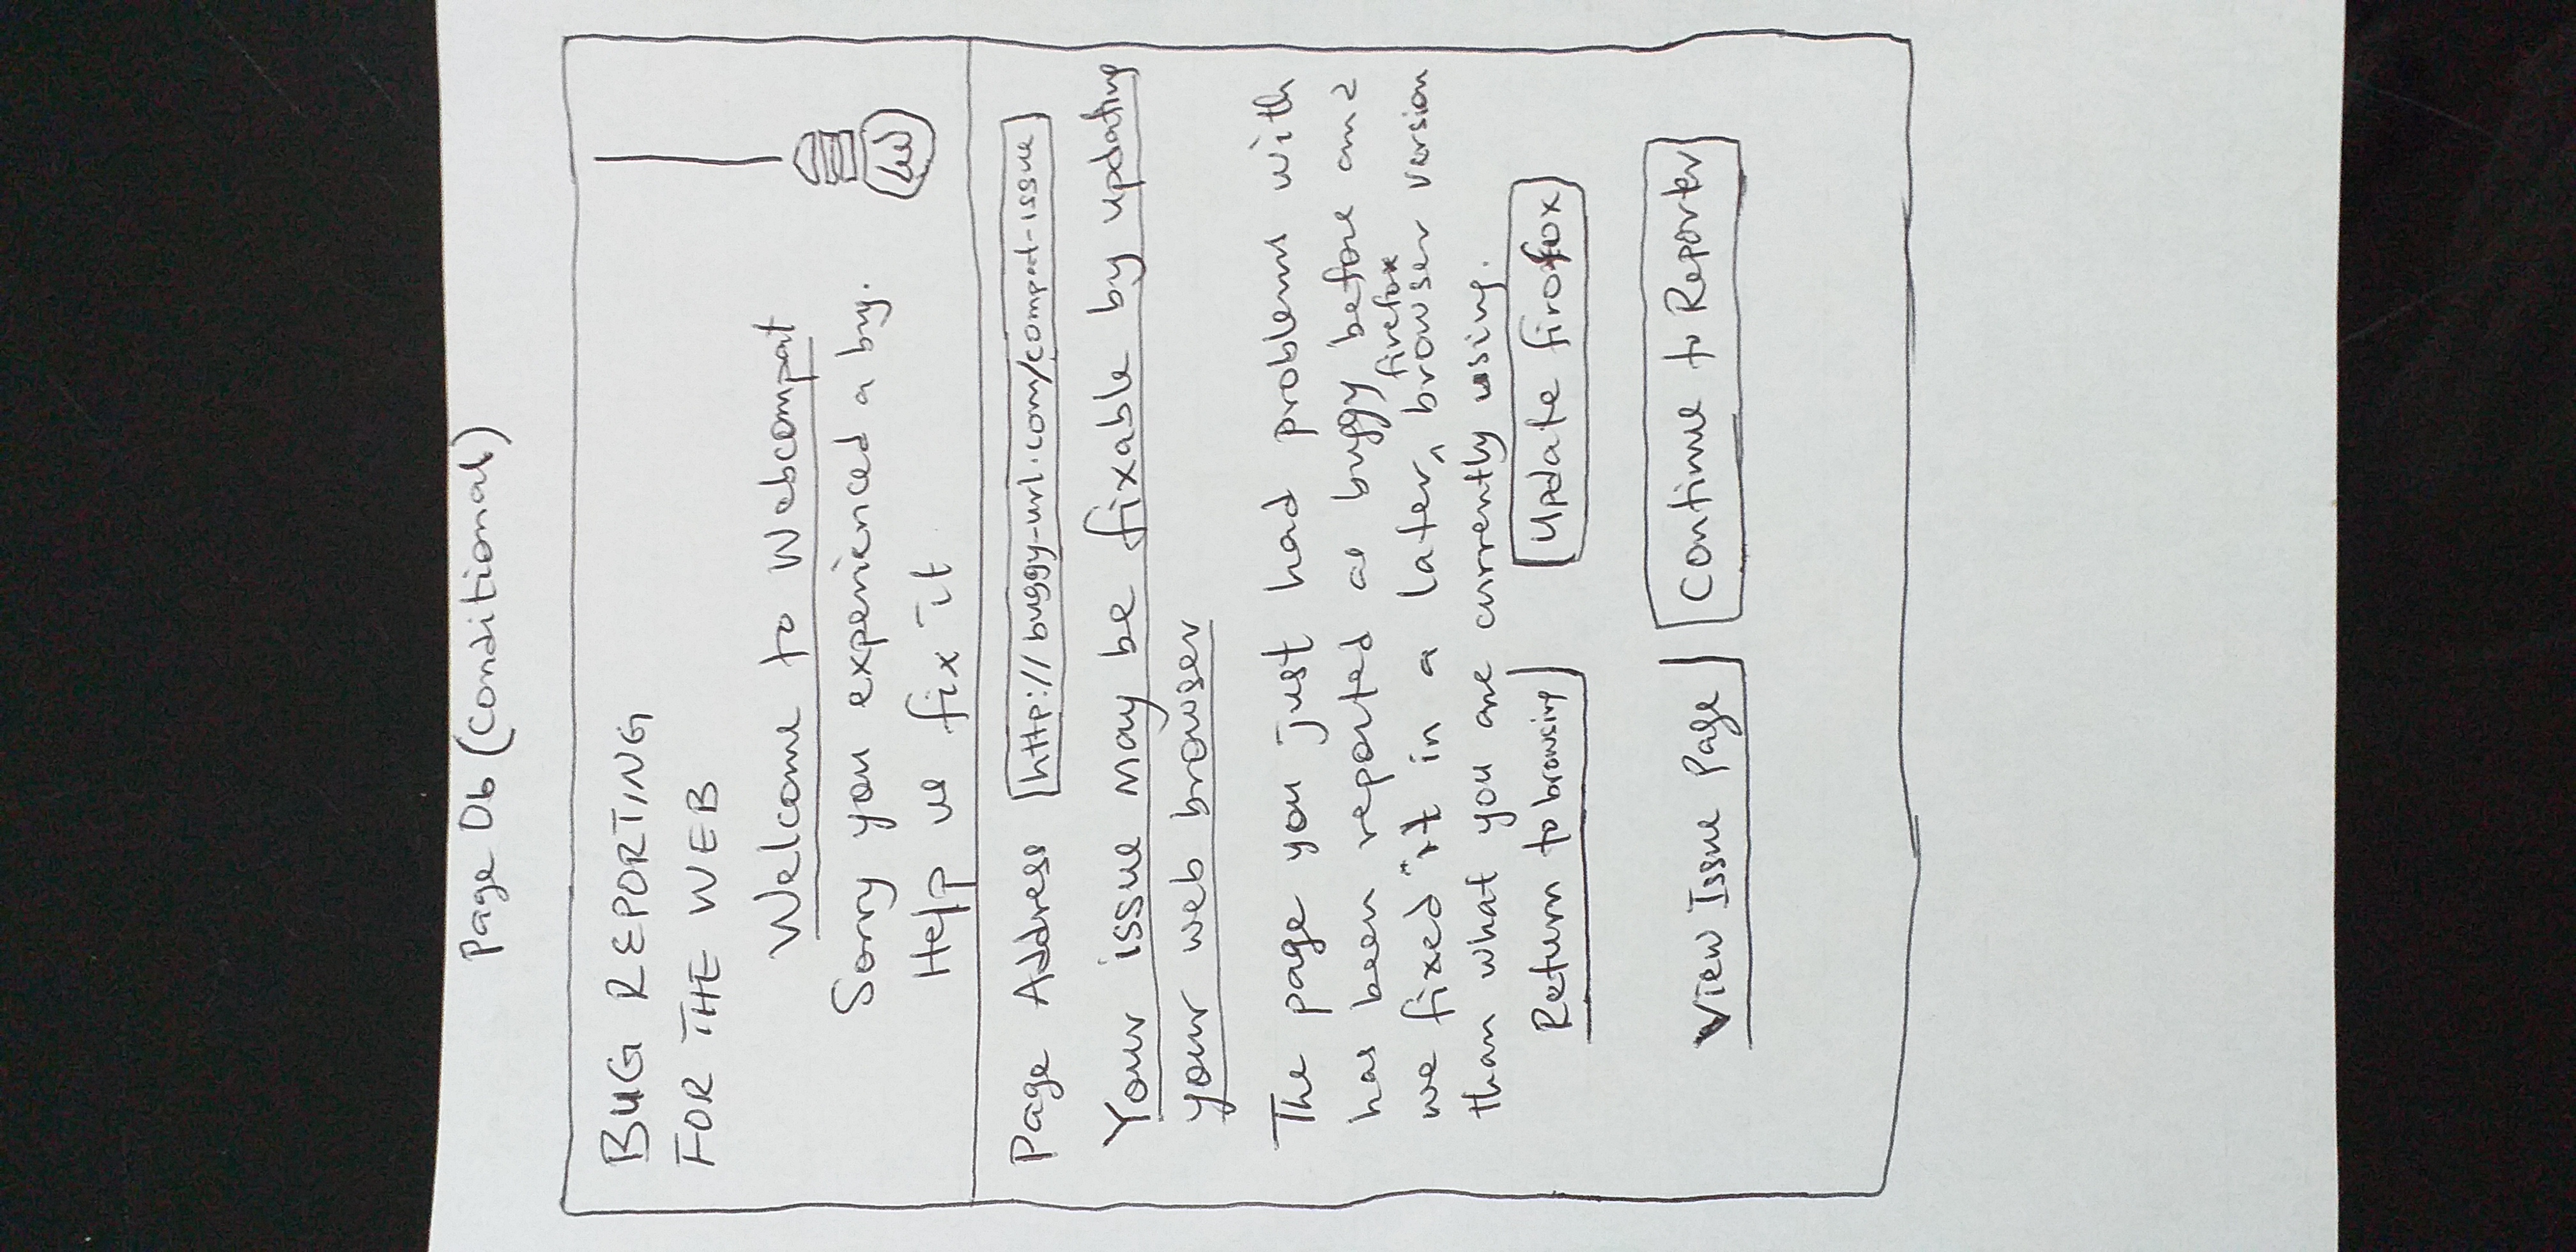 Page 0b (Conditional)
BUG REPORTING
FOR THE WEB
Welcome to Webcompat
Sorry you experienced a bug.
Help us fix it
Page Address http://buggy-url.com/compat-issue
Your issue may be fixable by updating
your web browser
The page you just had problems with
has been reported as buggy before and
we fixed it in a later firefox browser version
than what you are currently using.
Return to browsing Update firefox
View Issue Page Continue to Reporter